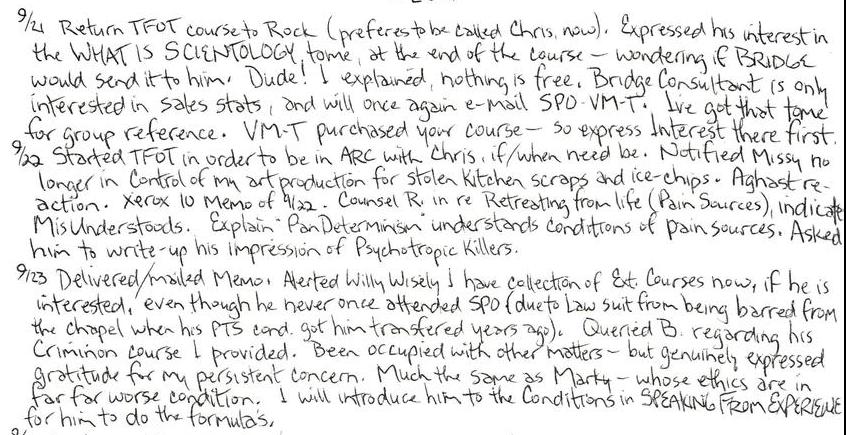 9/21 Return TFOT course to Rock (preferes to be called Chris, now). Expressed his interest in
the WHAT IS SCIENTOLOGY tome, at the end of the course — wondering if BRIDGE
would send it to him. Dude! I explained, nothing is free. Bridge Consultant is only
interested in sales stats, and will once again e-mail SPO-VM-T. I've got that tome
for group reference. VM-T purchased your course — so express Interest there first.
9/22 Started TFOT in order to be in ARC with Chris, if/when need be. Notified Missy no
longer in Control of my art production for stolen Kitchen scraps and ice-chips. Aghast re-
action. Xerox 10 Memo of 9/22. Counsel R. in re Retreating from life (Pain Sources), indicate
MisUnderstoods. Explain "PanDeterminism" understands conditions of pain sources. Asked
him to write-up his impression of Psychotropic Killers.
9/23 Delivered/mailed Memo. Alerted Willy Wisely I have collection of Ext. Courses now, if he is
interested, even though he never once attended SPO (due to Law suit from being barred from
the chapel when his PTS cond. got him transfered years ago). Queried B. regarding his
Criminon course I provided. Been occupied with other matters — but genuinely expressed
gratitude for my persistent concern. Much the same as Marky — whose ethics are in
far far worse condition. I will introduce him to the Conditions in SPEAKING FROM EXPERIENCE
for him to do the formulas.